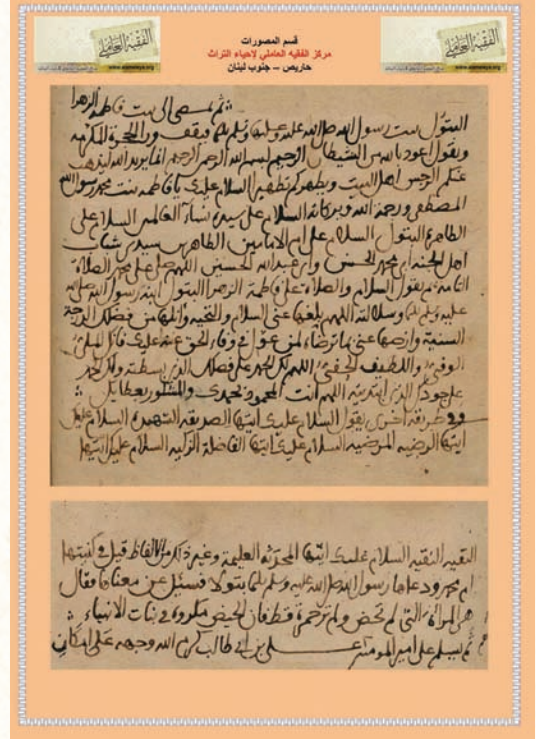 قسم المصورات
مركز الفقيه العاملي لإحياء التراث
حاريص – جنوب لبنان
الفقيه العاملي
الفقيه العاملي
ثم يمضي الى بيت فاطمة الزهرا
البتول بنت رسول الله صلى الله عليه وعليها وسلم فيقف ورا الحجرة المكرمة
ويقول اعوذ بالله من الشيطان الرجيم بسم الله الرحمن الرحيم انما يريد الله ليذهب
عنكم الرجس اهل البيت ويطهركم تطهيرا السلام عليك يا فاطمة بنت محمد رسول الله
المصطفى ورحمة الله وبركاته السلام على سيدة نساء العالمين السلام على
الطاهرة البتول السلام على ام الامامين الطاهرين سيدي شباب
اهل الجنة ابي محمد الحسن وابي عبدالله الحسين اللهم صل على محمد الصلاة
التامة ثم يقول السلام والصلاة على فاطمة الزهرا البتول ابنة رسول الله صلى الله
عليه وسلم اللهم بلغها عني السلام والتحية وانلها من فضلك الدرجة
السنية وارضها عني
الوفي واللطيف الحفي اللهم لك الحمد على فضلك الذي بسطته ولك الحمد
على جودك الذي اللهم انت المحمود
وفي طريقة اخرى يقول السلام عليك ايتها الصديقة الشهيدة السلام عليك
ايتها الرضية المرضية السلام عليك ايتها الفاضلة الزكية السلام عليك ايتها
التقية النقية السلام عليك ايتها المحدثة العليمة وغير ذلك من الالفاظ قيل وكنيتها
ام محمد ودعاها رسول الله صلى الله عليه وسلم بتولا فسئل عن معناه فقال
هي المراة التي لم تحض ولم تر حمرة قط فان الحيض مكروه في بنات الانبياء
ثم يسلم على امير المومنين علي بن ابي طالب كرم الله وجهه على